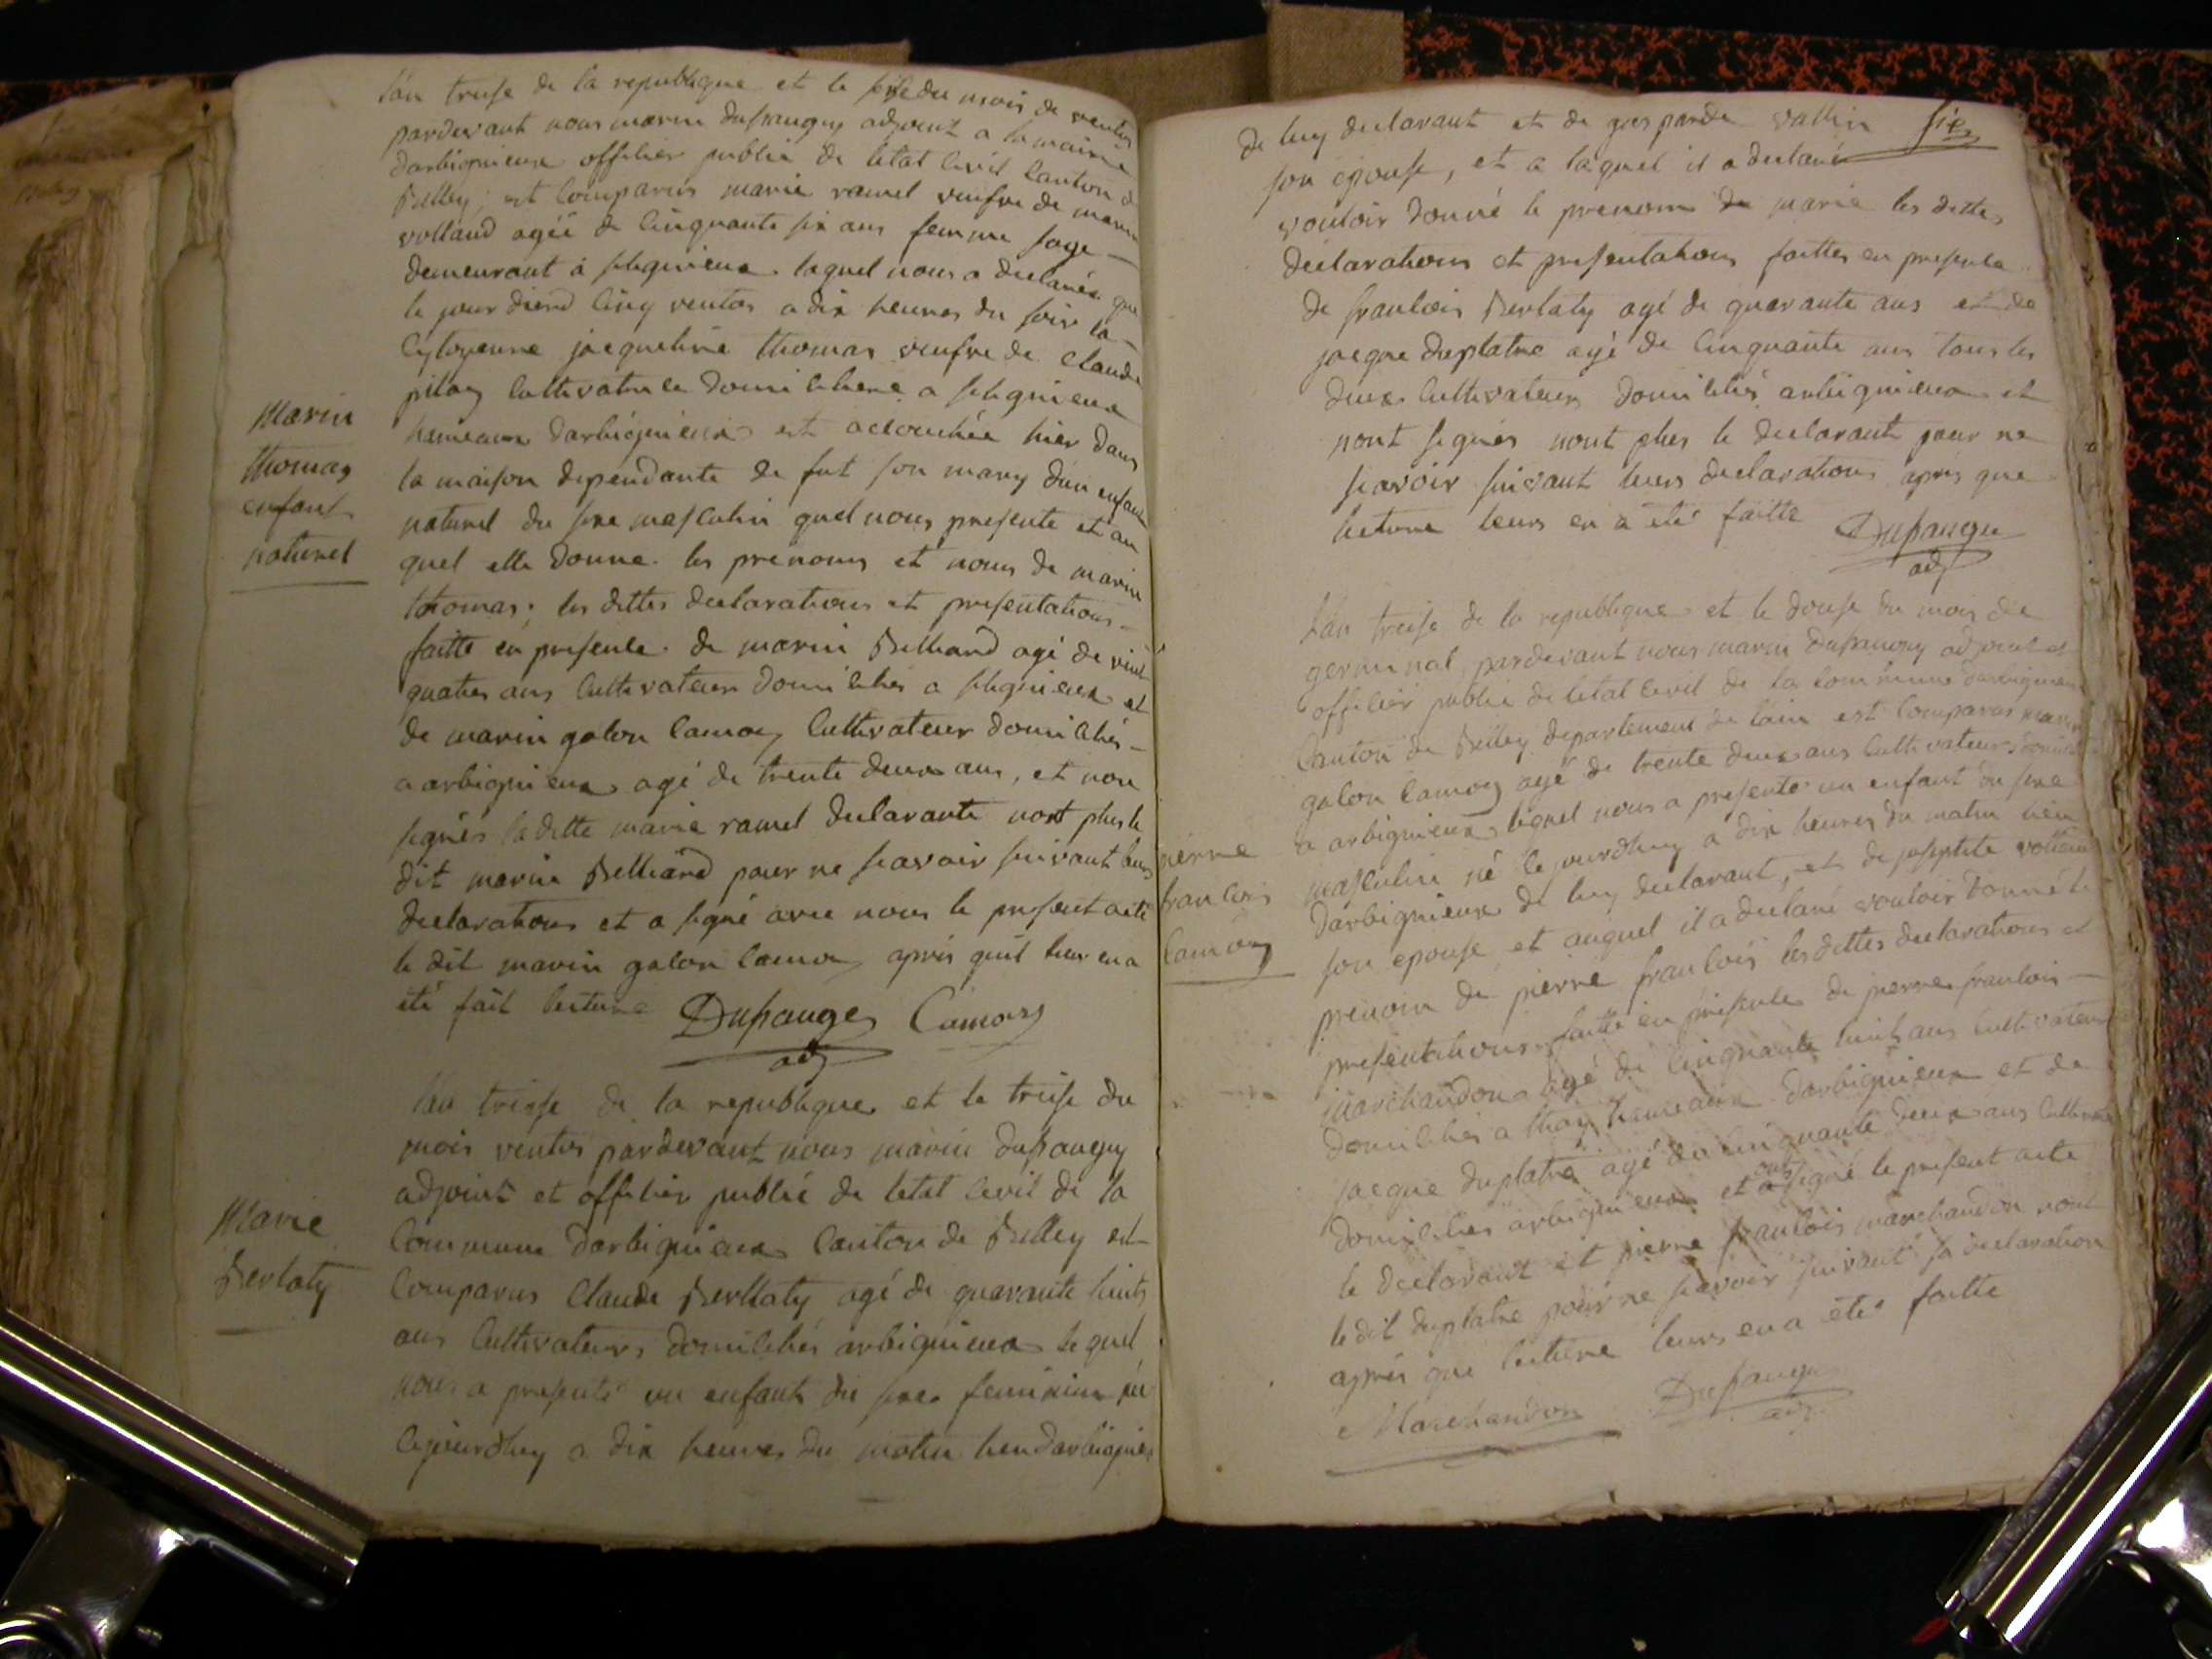 lan treise de la republique et le sise du mois de ventos
pardevant nous marin dupraugey adjoint a la mairie
darbignieux officier public de letat civil canton de
Belley, est comparus marie ramel veufve de marin
volland agée de cinquante six ans femme sage
demeurant à peligneux laquel nous a declarée que
le jour dierd cinq ventos a dix heures du soir la
cytoyenne jacqueline thomas veufve de claude
pitoy cultivatrice domiciliene a seligneux
hameaux darbignieux est acouchée hier dans
la maison dependante de fut son mary dun enfant
naturel du sexe masculin quel nous presente et au
quel elle donne les prenoms et noms de marin
thomas; les dittes declarations et presentations
faitte en presence de marin Belliard agé de vint
quatres ans cultivateur domicilies a seligneux et
de marin galon camoz cultivateur domiciliés
a arbignieux agé de trente deux ans, et non
signés la ditte marie ramel declarante nont plus le
dit marin Belliard pour ne scavoir suivant leurs
declarations et a signé avec nous le present acte
le dit marin galon camoz après quil leur en a
été fait lecture Dupraugey Camoz
adj
Marin
thomas
enfant
naturel
lan treise de la republique et le treise du
mois ventos pardevant nous marin dupraugey
adjoint et officier public de letat civil de la
Commune darbignieux canton de Belley est
Comparus Claude Berllaty agé de quarante huits
ans cultivateurs domiciliés arbignieux lequel
nous a presenté un enfant du sexe feminim né
cejourdhuy a dix heures du matin lieu darbignieu
Marie
Berlaty
de luy declarant et de gasparde vallin six
son épouse, et a laquel il a declaré
vouloir donné le prenom de marie les dittes
declarations et presentations faittes en presence
de francois Berlaty agé de quarante ans et de
jacque duplatre agé de cinquante ans tous les
deux cultivateurs domiciliés arbignieux et
nont signés nont plus le declarant pour ne
scavoir suivant leurs declarations après que
lecture leurs en a eté faitte Dupraugey
adj
Lan treise de la republique et le douse du mois de
germinal, pardevant nous marin dupraugey adjoint et
officier public de letat civil de la commune darbignieux
Canton de Belley departement de lain est comparus marin
galon camoz agé de trente deux ans cultivateurs domicilié
a arbignieux lequel nous a presenté un enfant du sexe
masculin né cejourdhuy a dix heures du matin lieu
darbignieux de luy declarant, et de josephte
son epouse et auquel il a declaré vouloir donné le
prenom de pierre francois les dittes declarations et
presentations faitte en presence de pierre francois
marchandon agé de cinquante huit ans cultivateur
domiciliés a thoy hameaux darbignieux et de
jacque duplatre agé de cinquante deux ans cultivateur
domiciliés arbignieux et ont signé le present acte
le declarant et pierre francois marchandon nont
le dit duplatre pour ne scavoir suivant sa declaration
après que lecture leurs en a été faitte
Marchandon Dupraugey
adj
pierre
francois
camoz